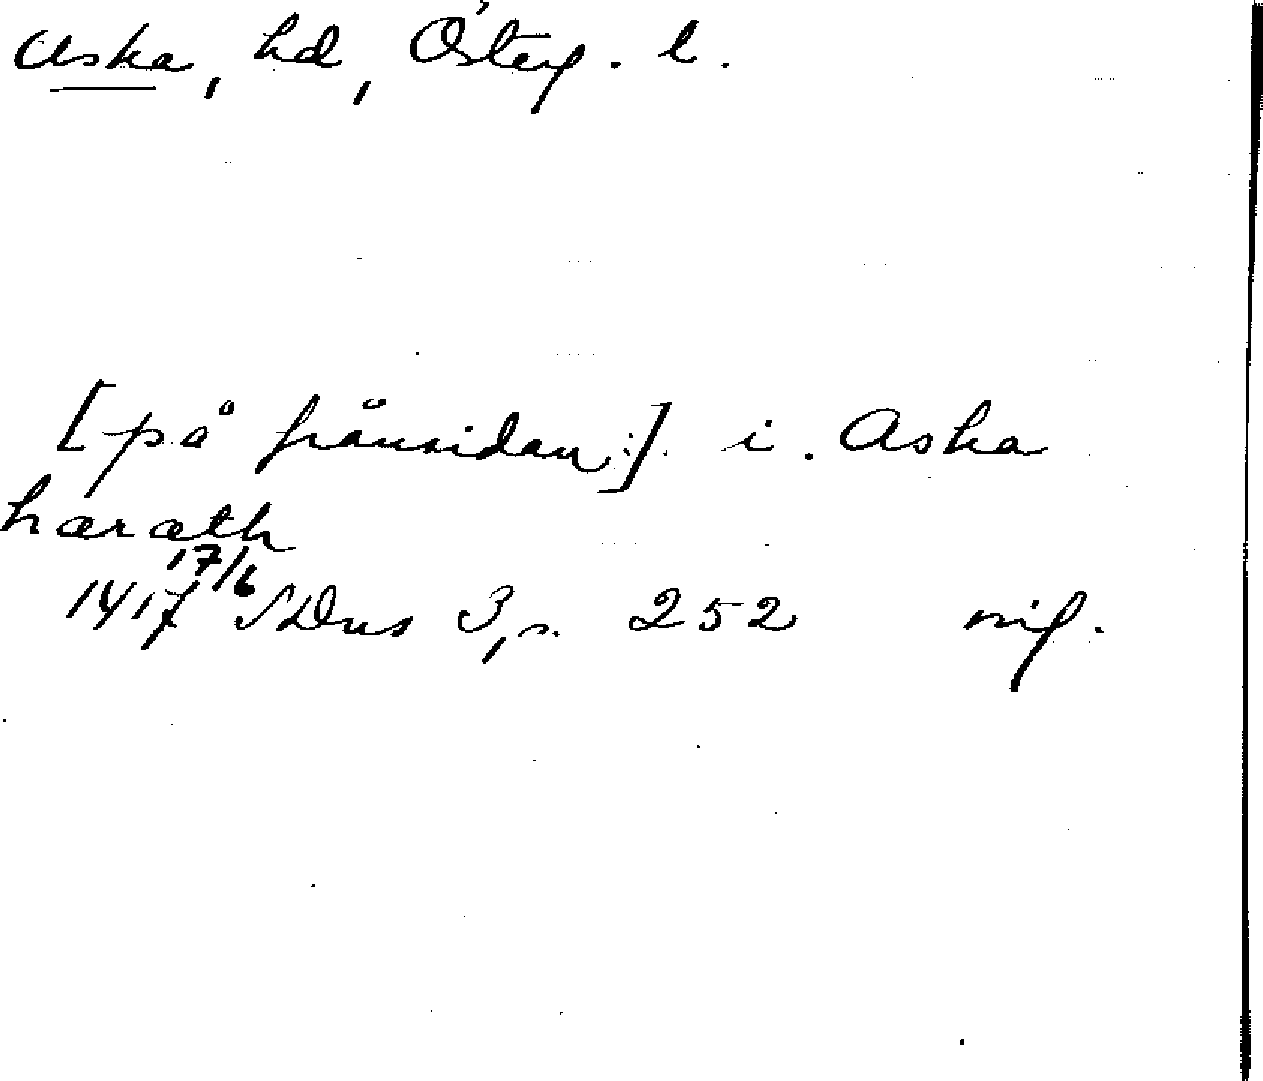 Aska, hd, Österg. l.
[på frånsidan:] i. Aska
haræth
1417 17/6 SDns 3, s. 252 orig.